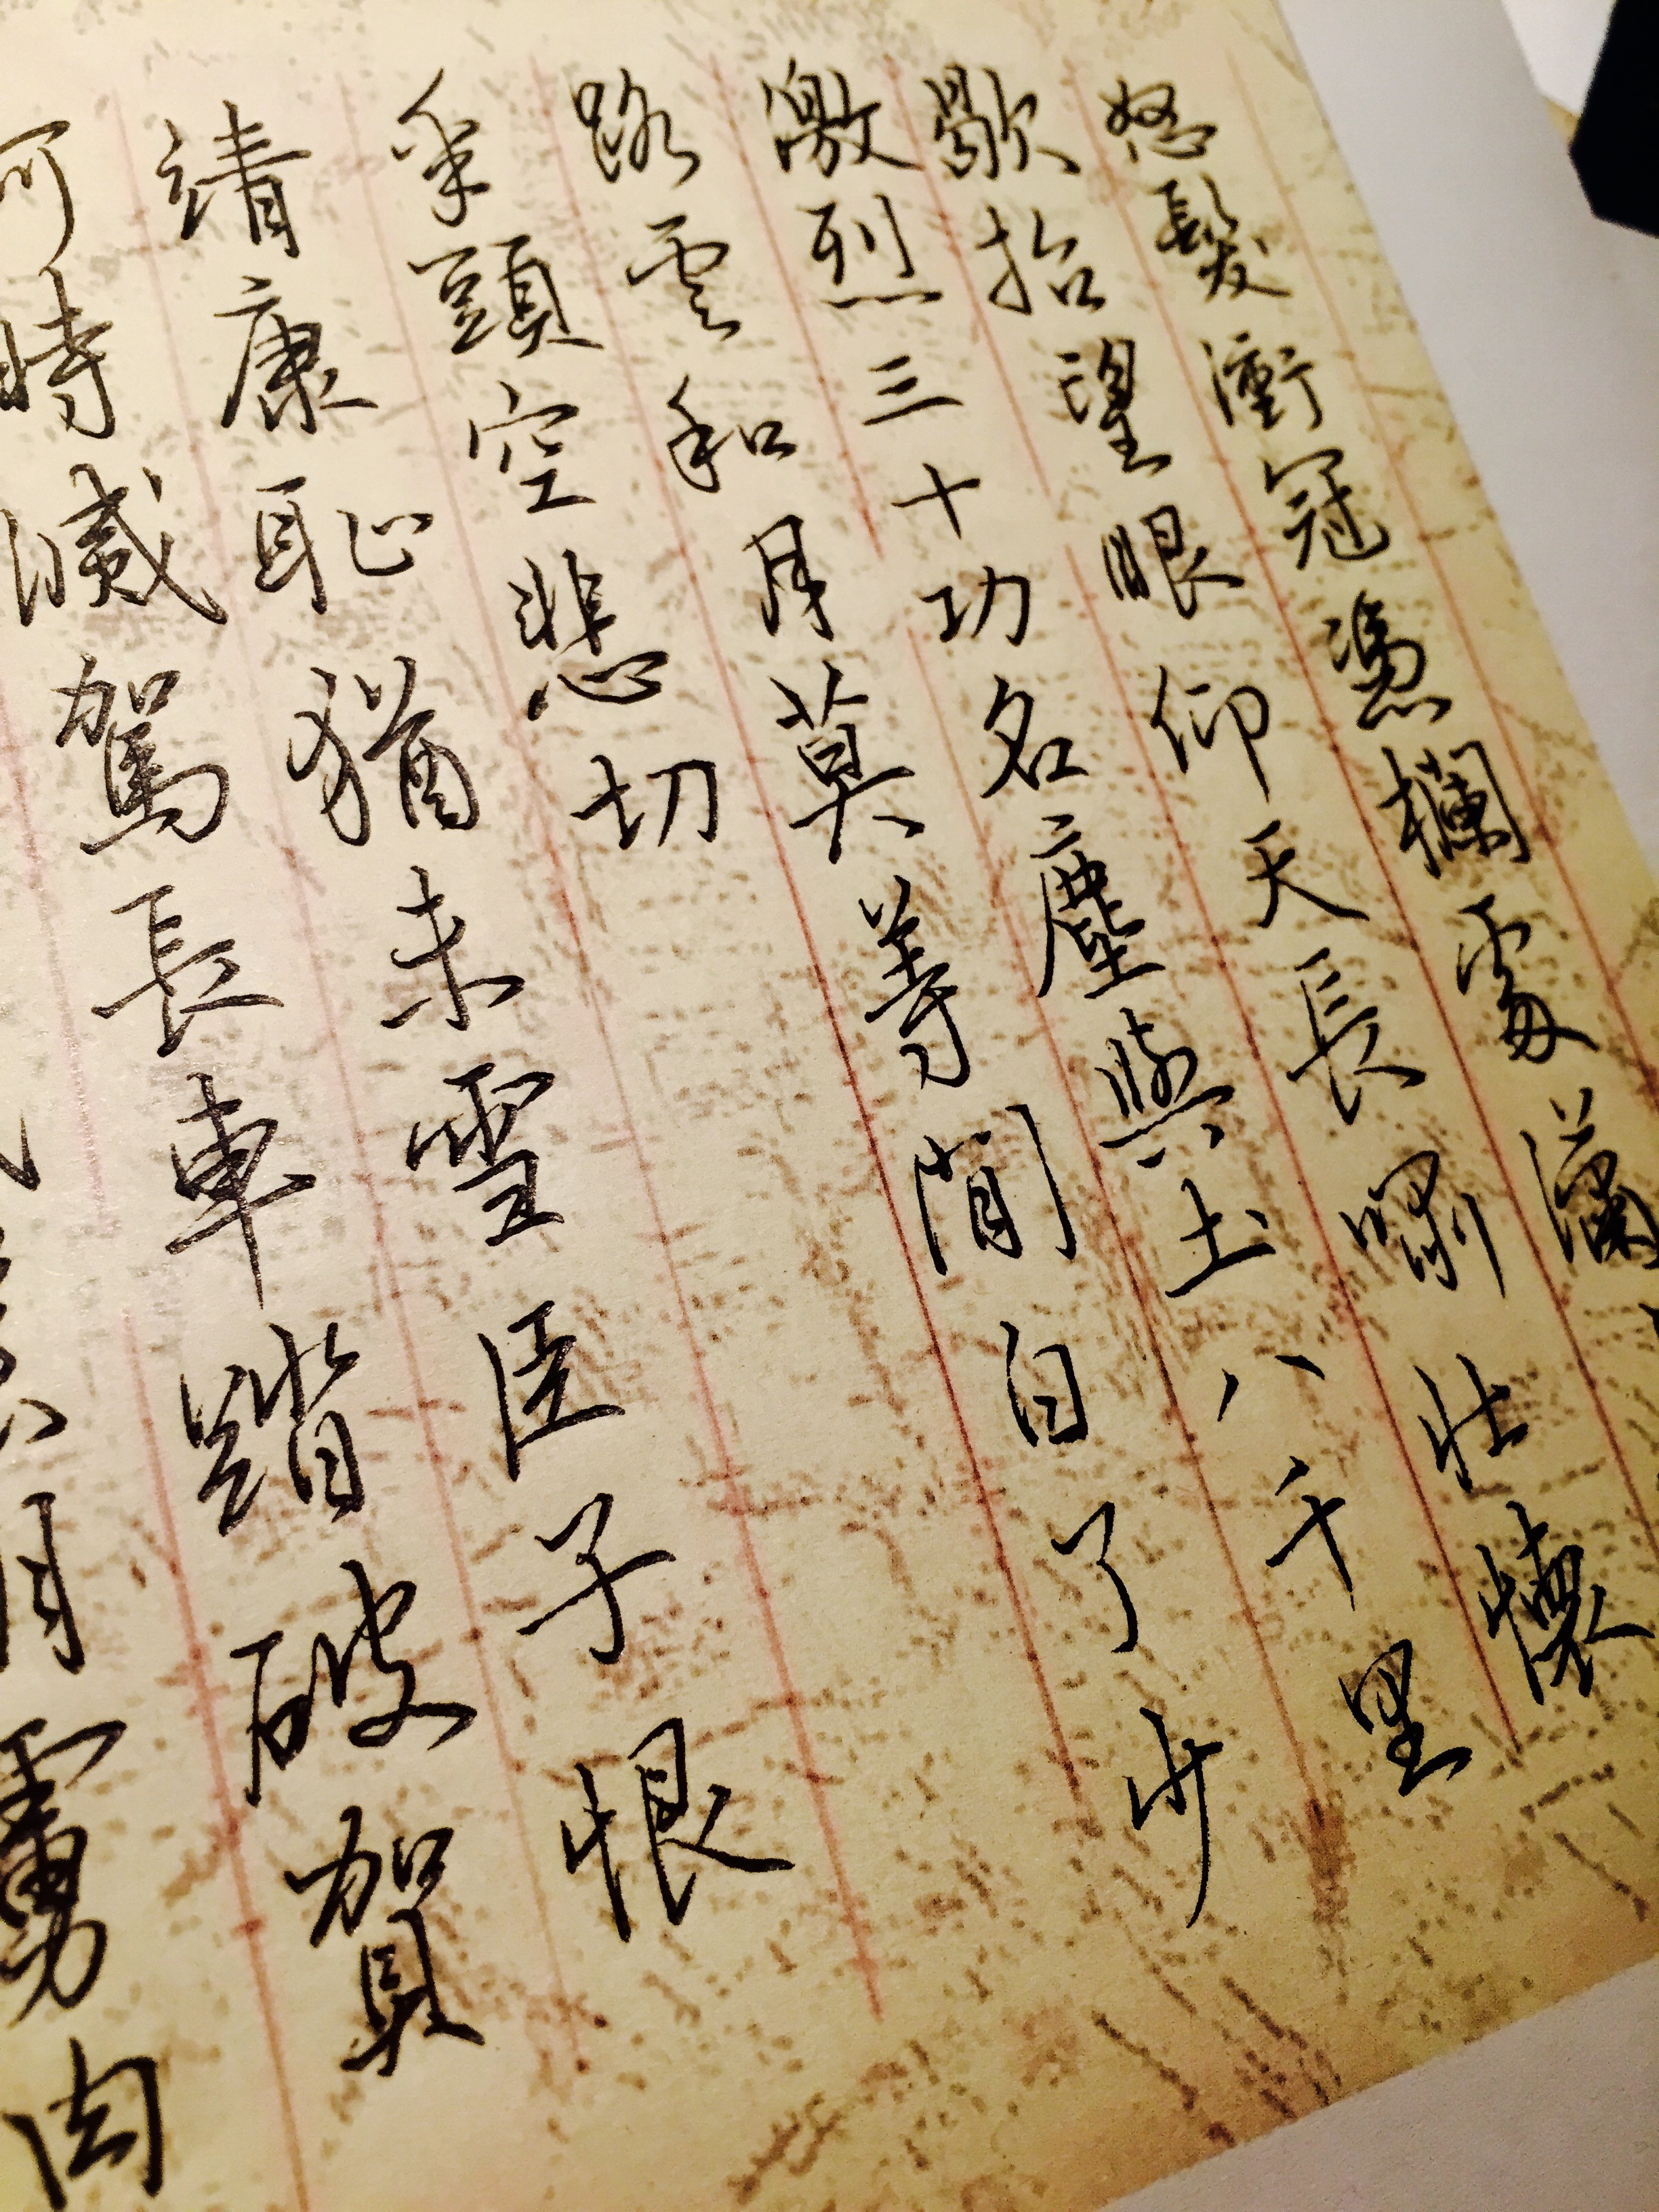 怒髮衝冠憑欄處瀟
歇抬望眼仰天長嘯壯懷
激烈三十功名塵與土八千里
路雲和月莫等閒白了少
年頭空悲切
靖康恥猶未雪臣子恨
何時滅駕長車踏破賀
虜肉